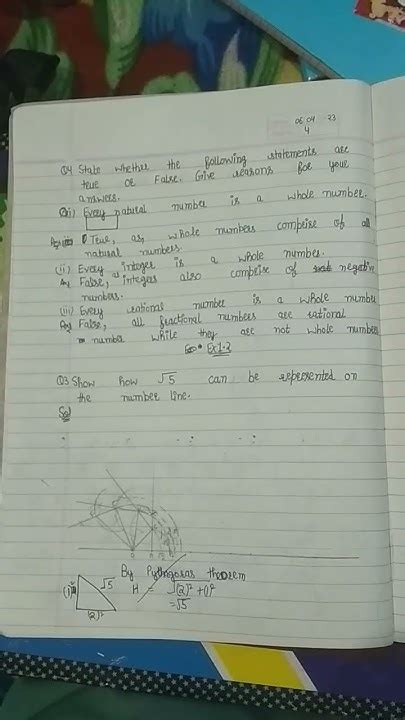 05 04 23
4
Q4 State whether the following statements are
true or False. Give reasons for your
answers.
(i) Every natural number is a whole number.
True, as, whole numbers comprise of all
natural numbers.
(ii) Every integer is a whole number.
False, as integers also comprise of negative
numbers.
(iii) Every rational number is a whole number
False, all fractional numbers are rational
number while they are not whole numbers
Ex 1.2
Q3 Show how √5 can be represented on
the number line.
Sol
By Pythgoras theorem
(1)² √5 H = √(2)² + (1)²
(2)² =√5